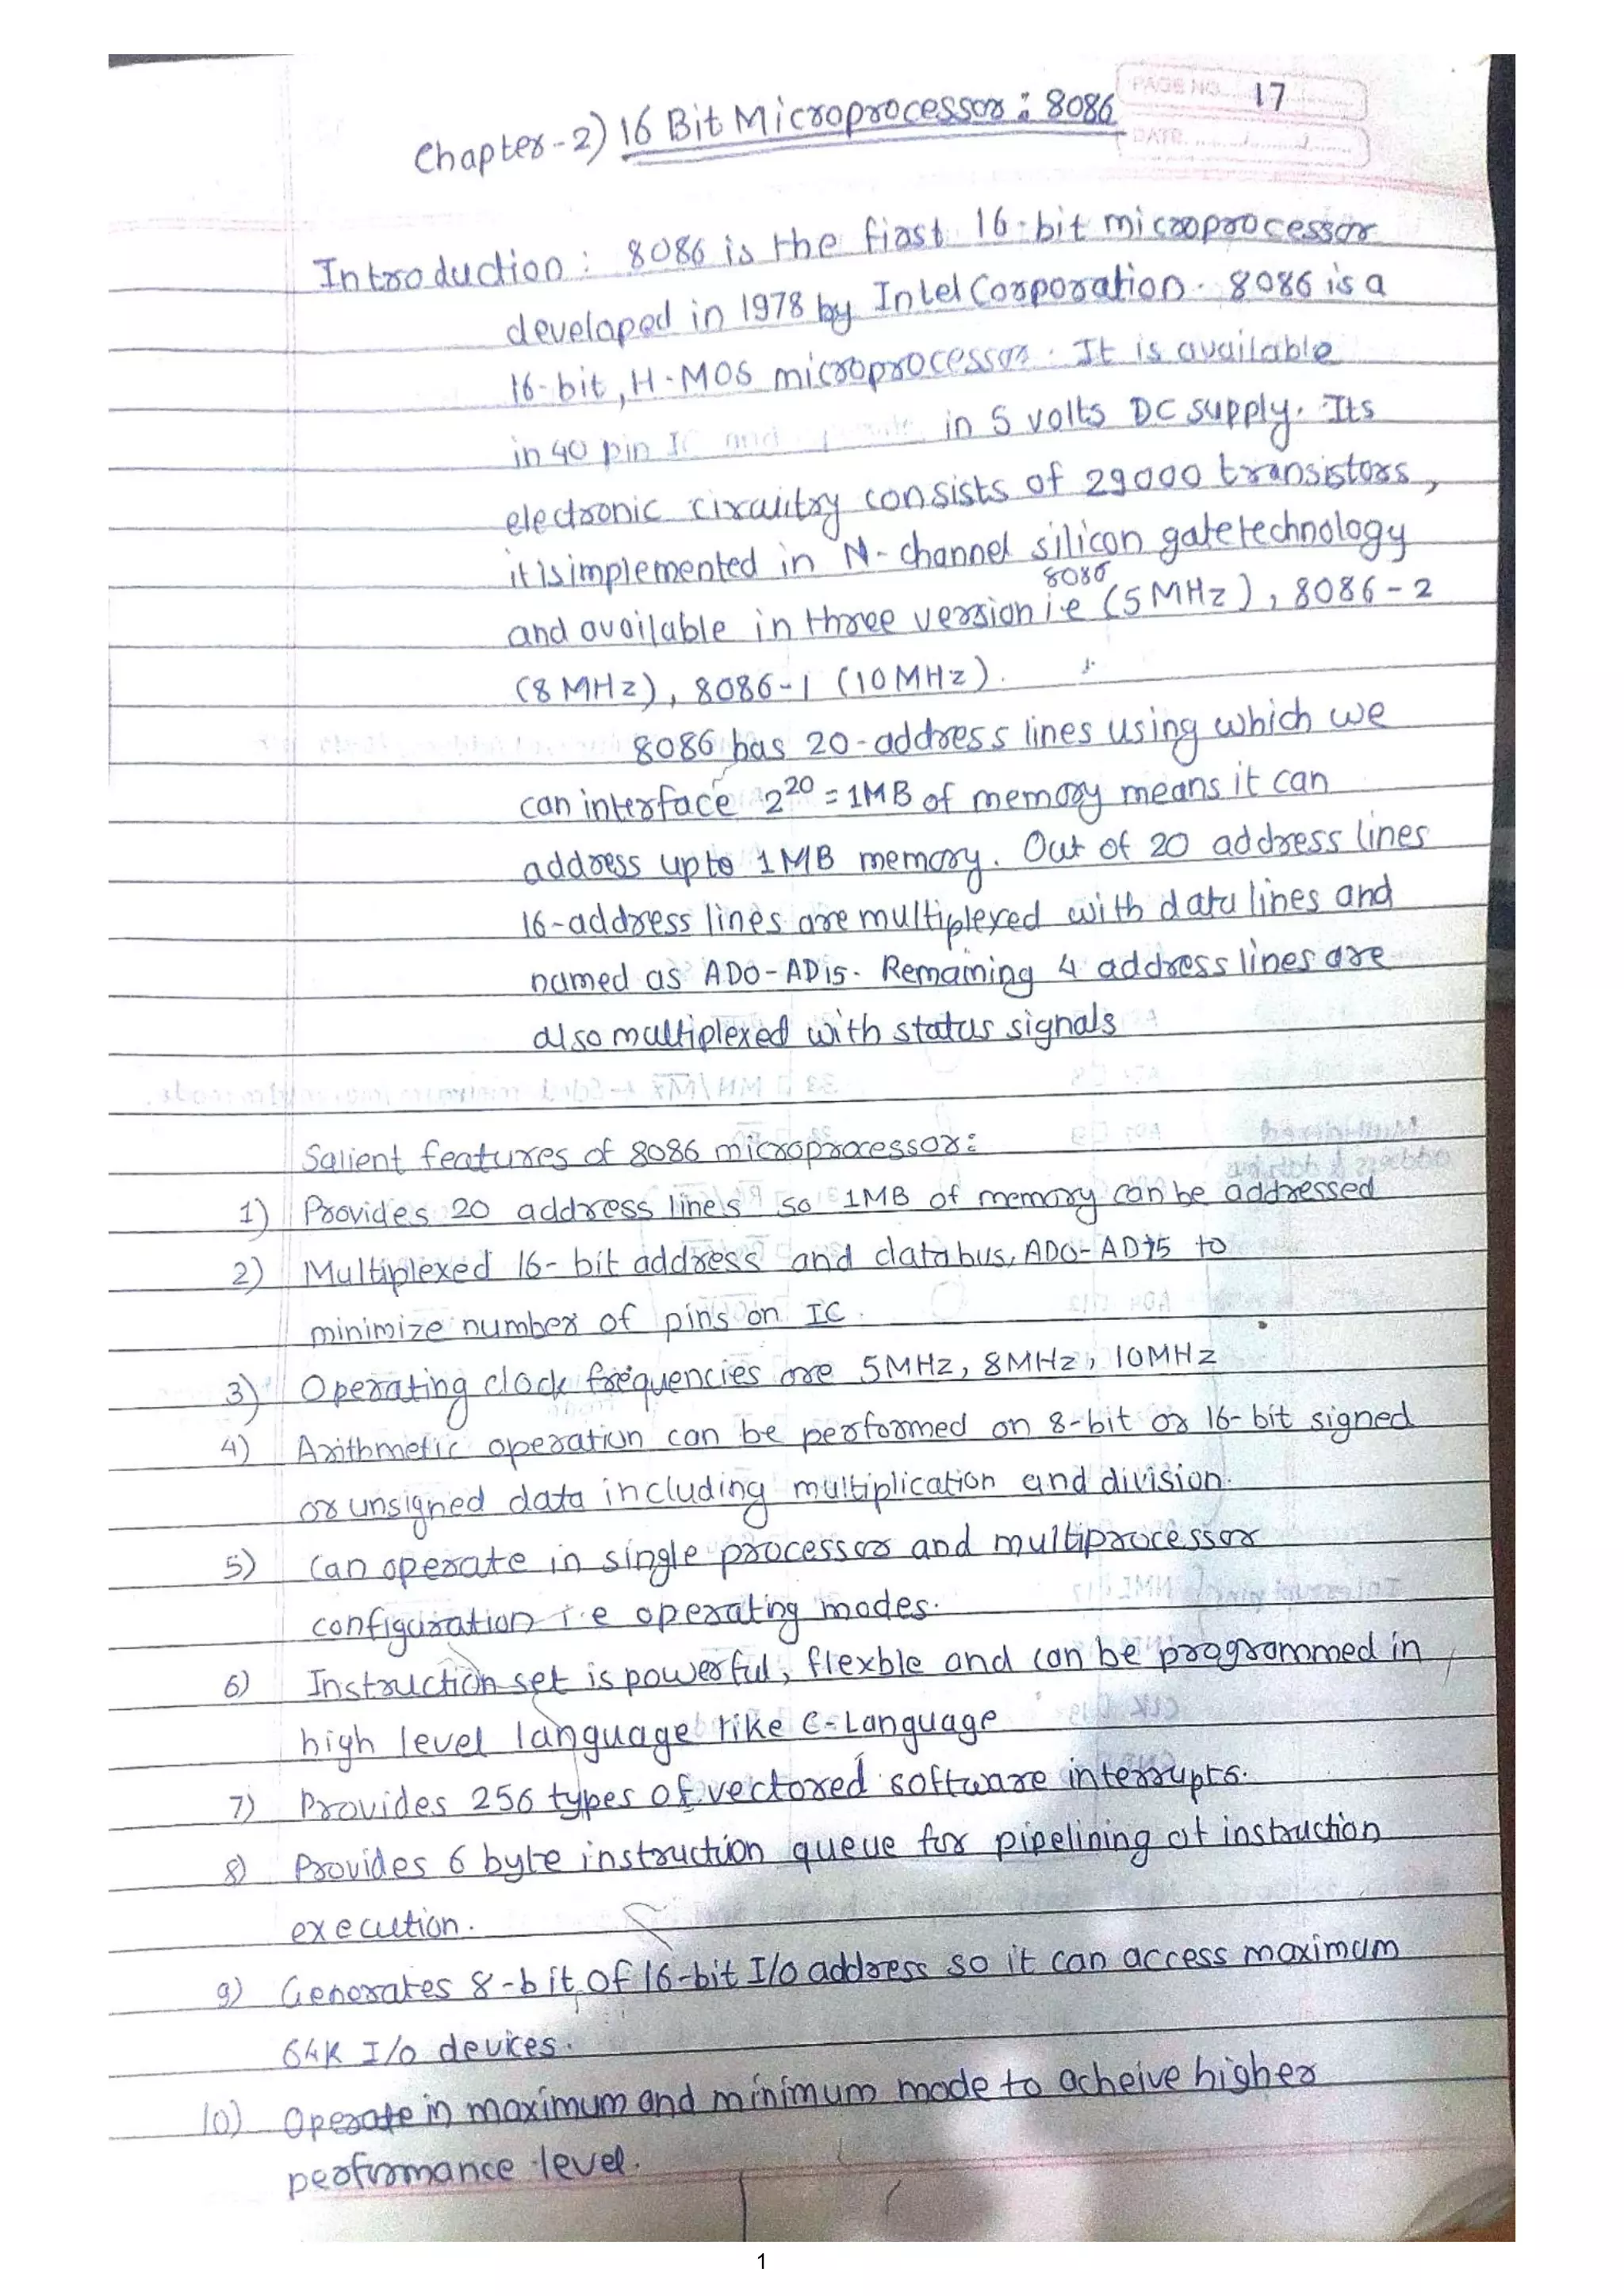 PAGE NO. 17
DATE
Chapter-2) 16 Bit Microprocessor : 8086
Introduction : 8086 is the first 16-bit microprocessor
developed in 1978 by Intel Corporation. 8086 is a
16-bit, H-MOS microprocessor. It is available
in 40 pin IC and in 5 volts DC supply. Its
electronic circuitry consists of 29000 transistors,
it is implemented in N-channel silicon gate technology
8086
and available in three version i.e (5MHz), 8086-2
(8 MHz), 8086-1 (10MHz).
8086 has 20-address lines using which we
can interface 2²⁰ = 1MB of memory means it can
address upto 1MB memory. Out of 20 address lines
16-address lines are multiplexed with data lines and
named as AD0-AD15. Remaining 4 address lines are
also multiplexed with status signals
Salient features of 8086 microprocessor:
1) Provides 20 address lines so 1MB of memory can be addressed
2) Multiplexed 16-bit address and data bus, AD0-AD15 to
minimize number of pins on IC.
3) Operating clock frequencies are 5MHz, 8MHz, 10MHz
4) Arithmetic operation can be performed on 8-bit or 16-bit signed
or unsigned data including multiplication and division.
5) Can operate in single processor and multiprocessor
configuration i.e operating modes.
6) Instruction set is powerful, flexble and can be programmed in
high level language like C-Language
7) Provides 256 types of vectored software interrupts.
8) Provides 6 byte instruction queue for pipelining of instruction
execution.
9) Generates 8-bit of 16-bit I/O address so it can access maximum
64K I/O devices.
10) Operate in maximum and minimum mode to acheive higher
perfromance level.
1